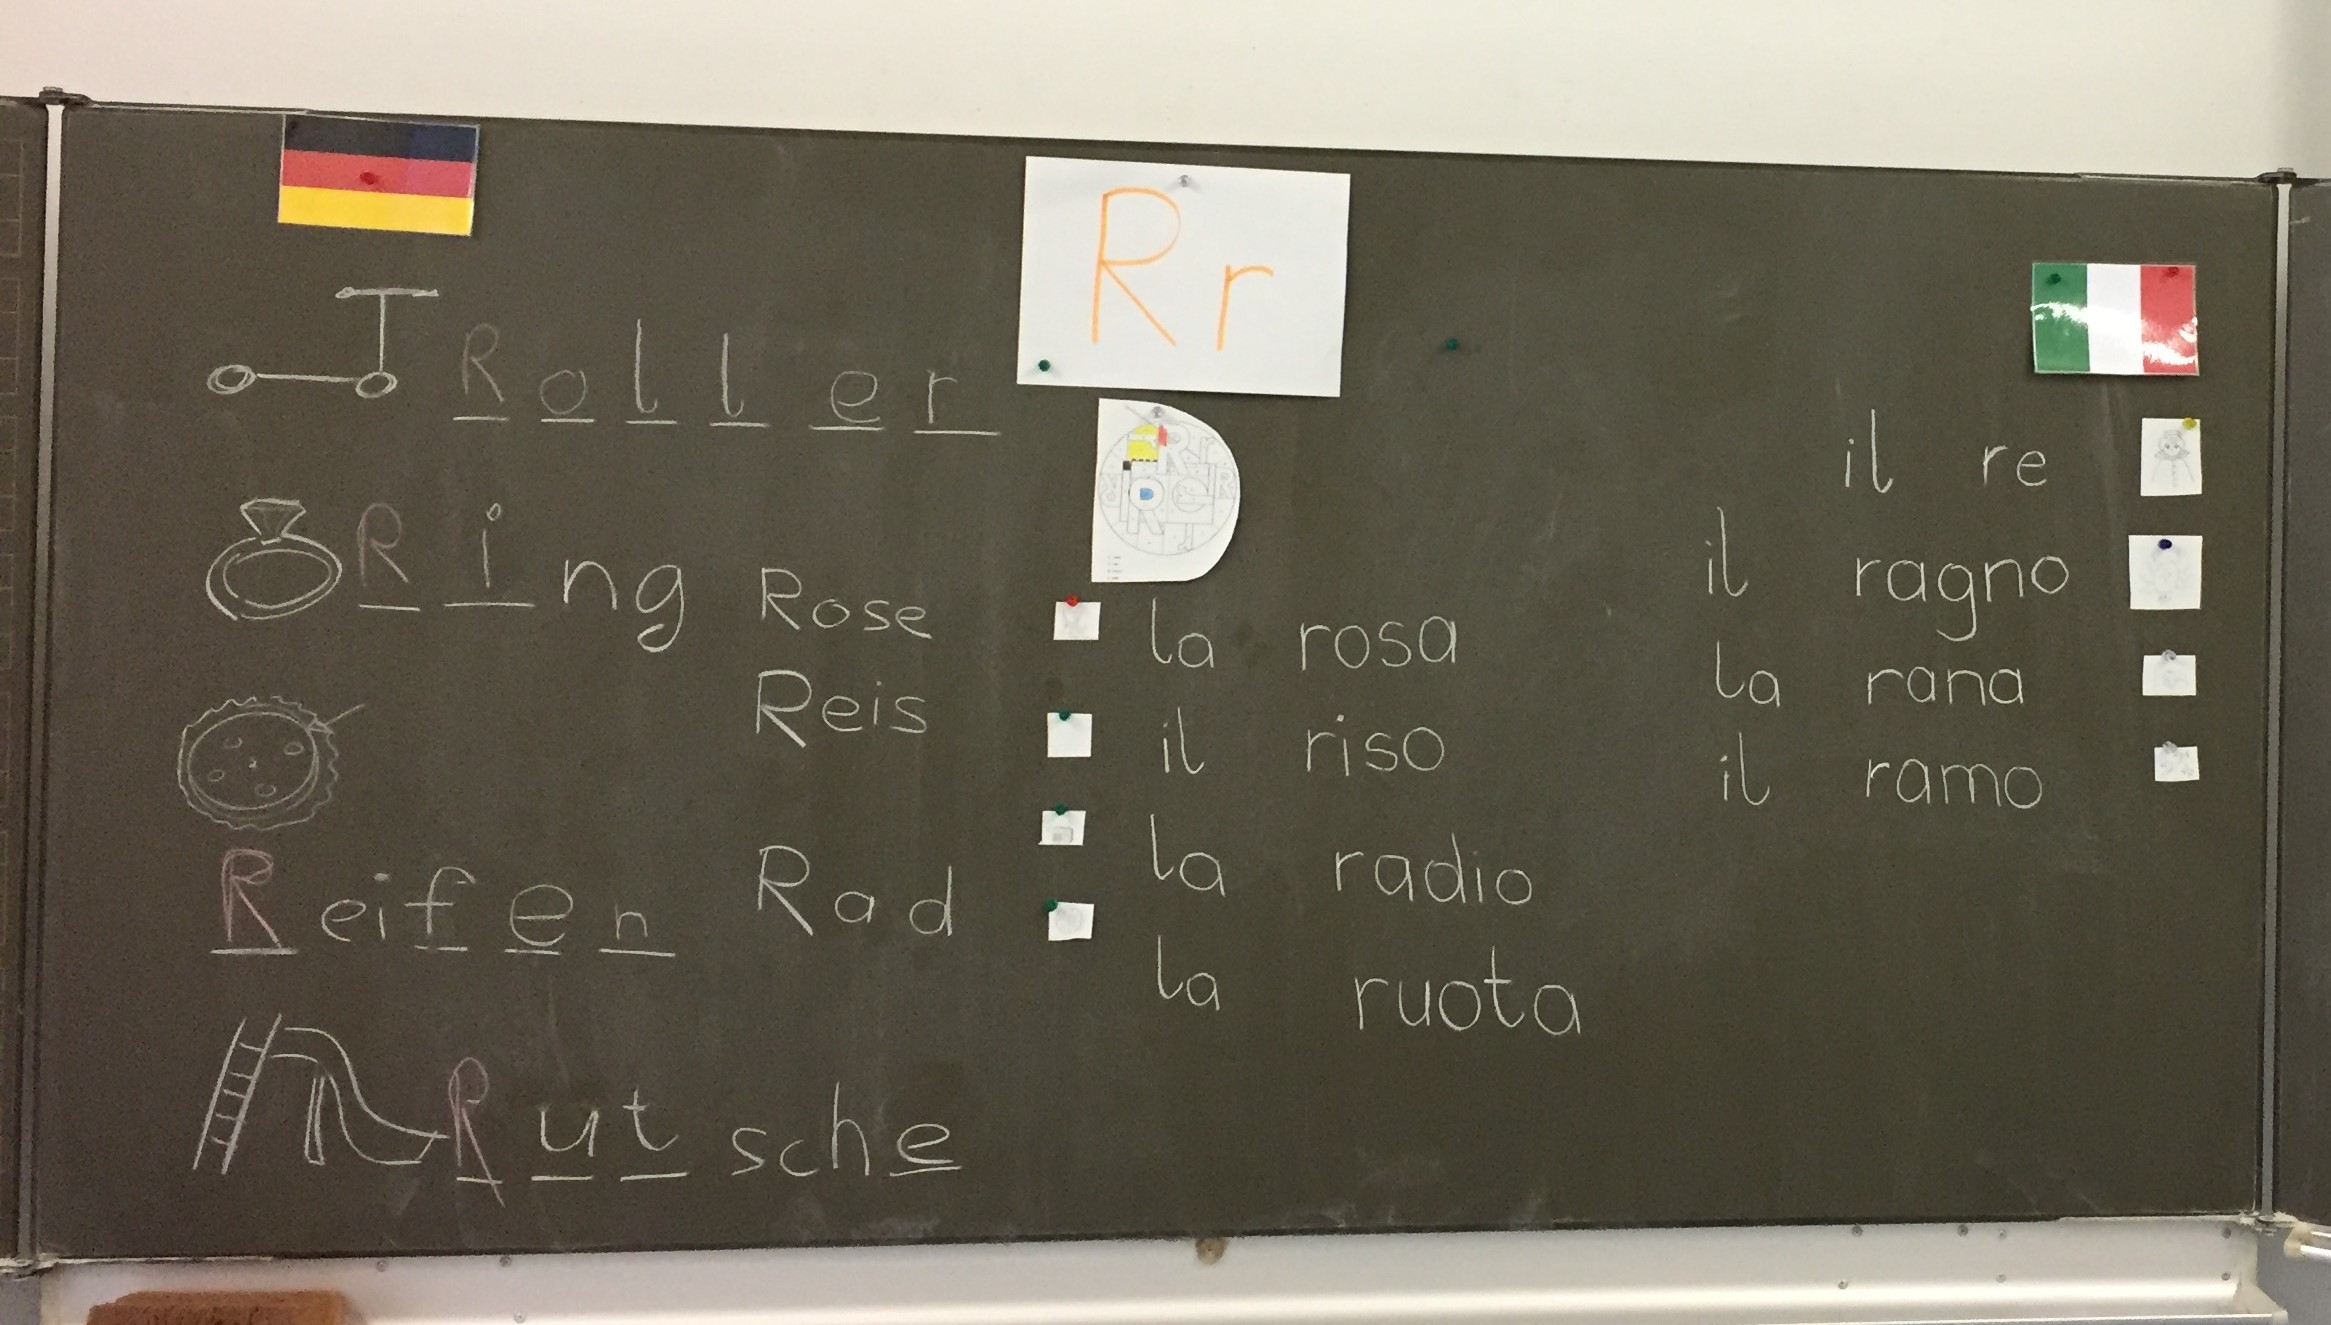 Rr
Roller
Ring
Reifen
Rutsche
Rose
Reis
Rad
la rosa
il riso
la radio
la ruota
il re
il ragno
la rana
il ramo